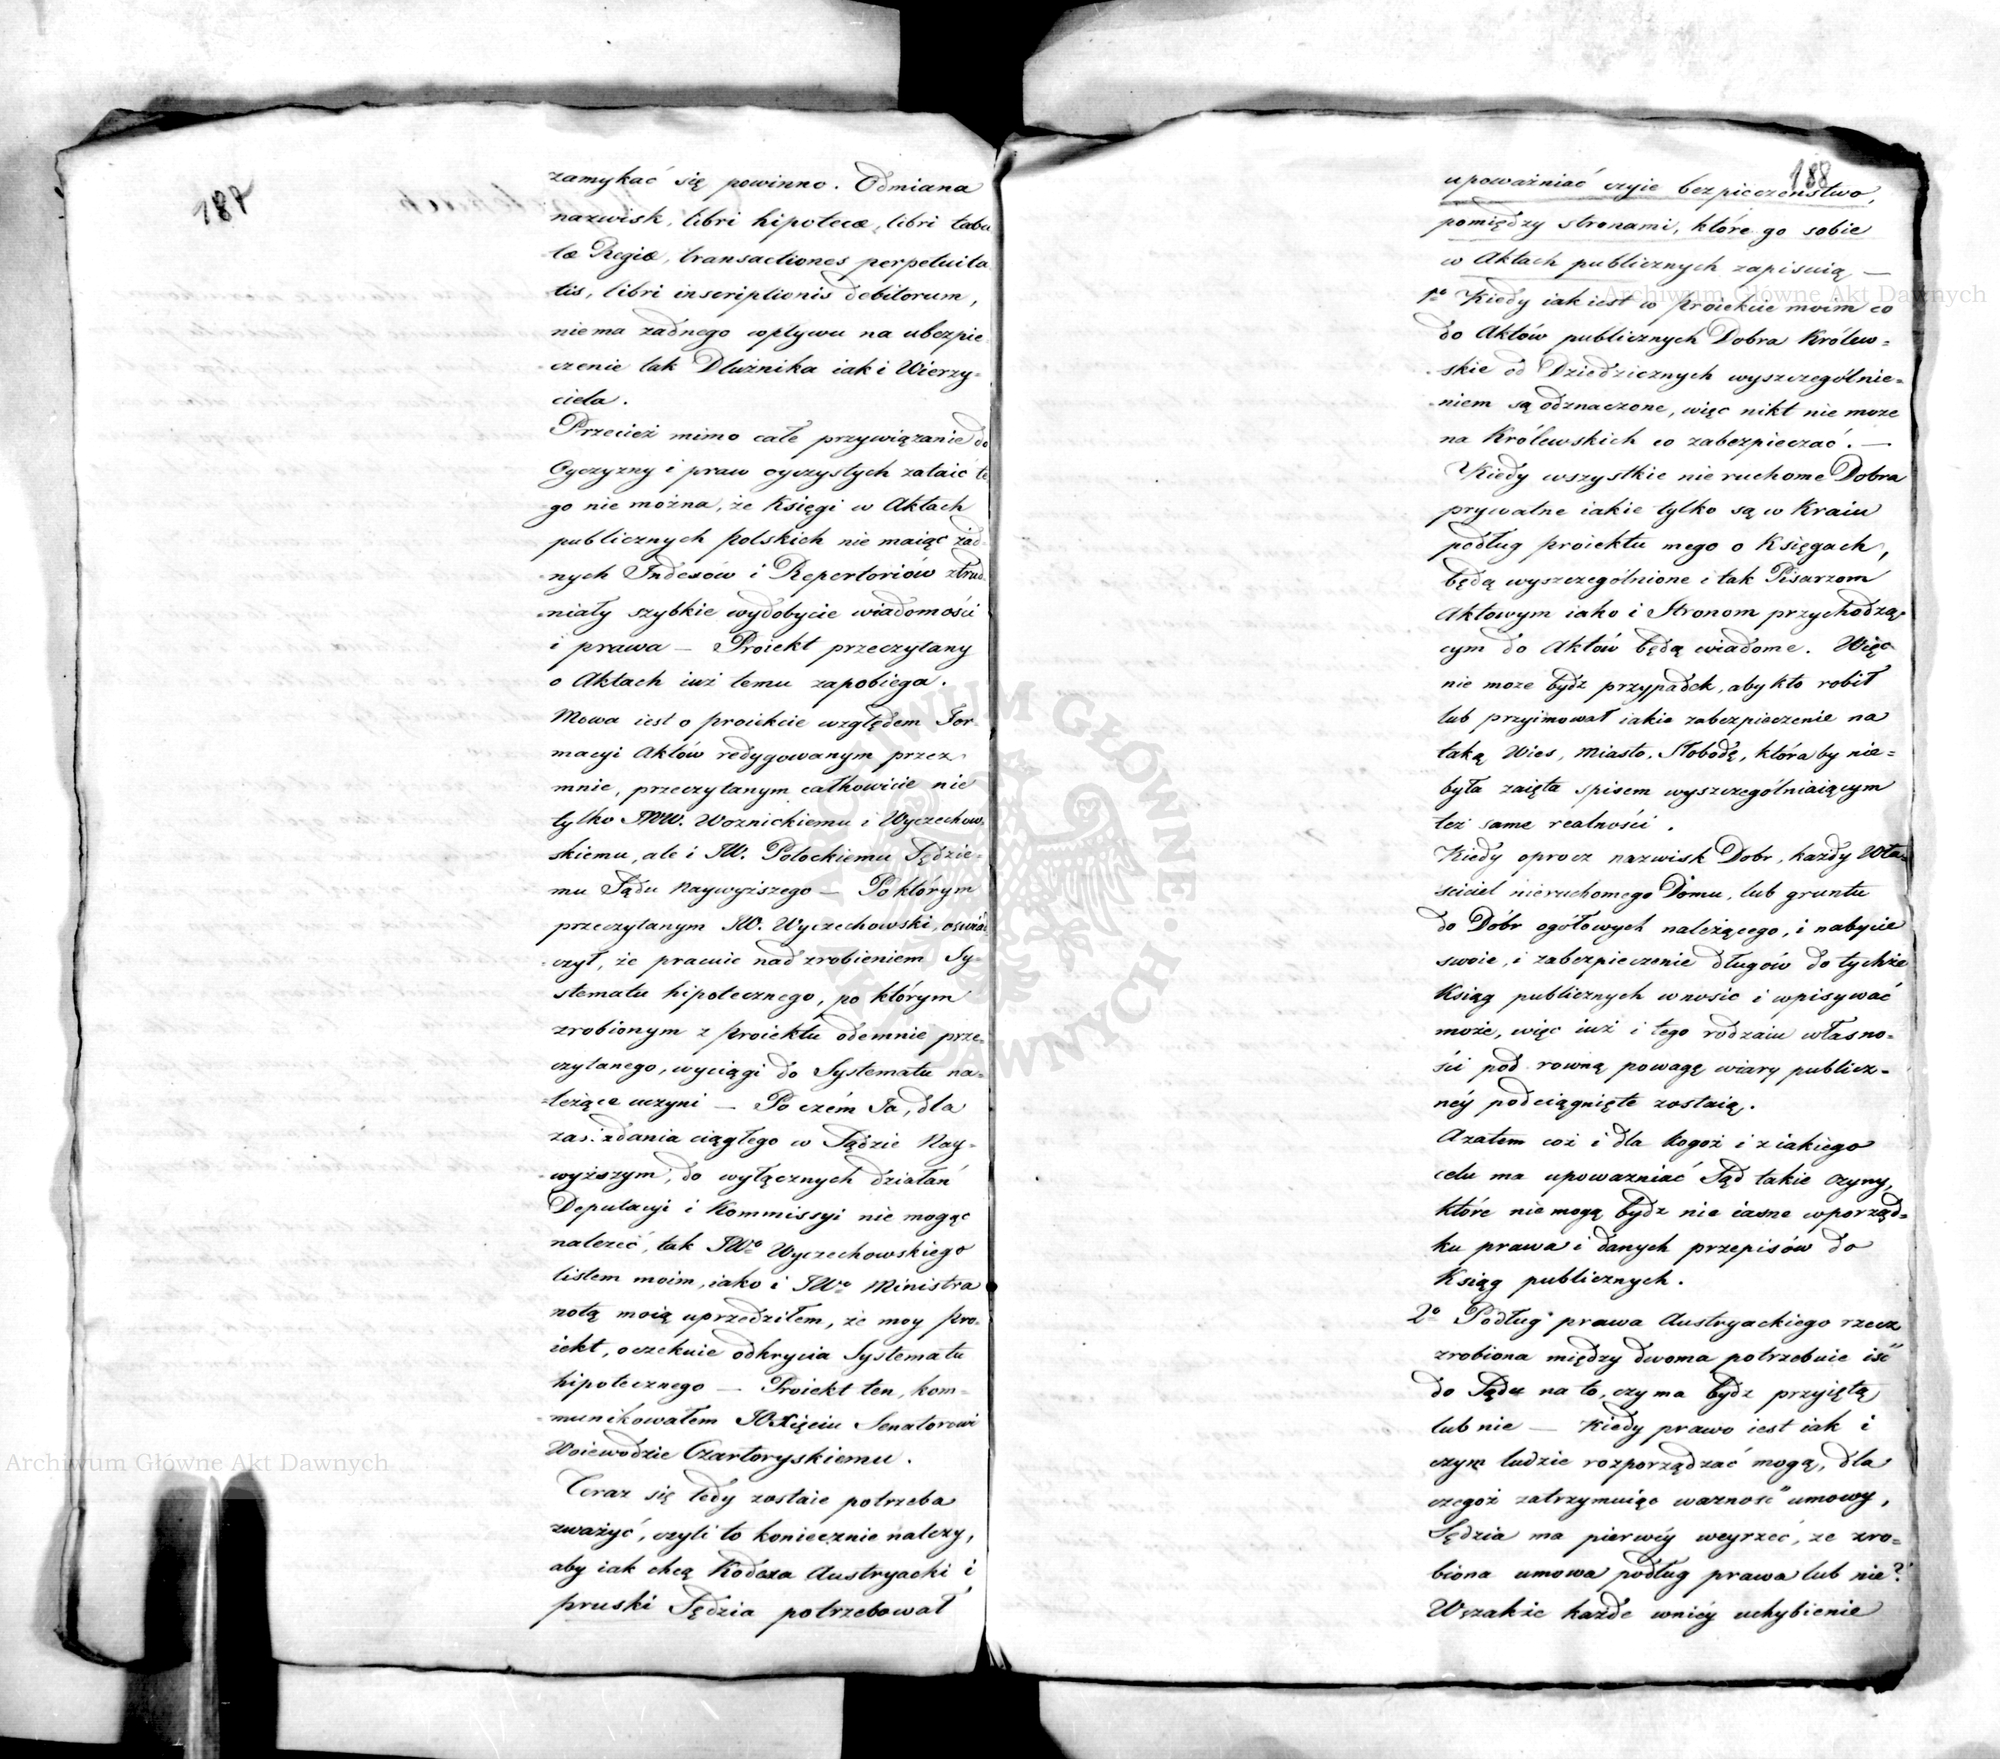 187
zamykać się powinno. Odmiana
nazwisk, libri hipotecæ, libri tabu
læ Regiæ, transactiones perpetuita
tis, libri inscriptionis debitorum,
niema żadnego wpływu na ubezpie
czenie tak Dłużnika iak i Wierzy=
ciela.
Przecież mimo całe przywiązanie do
Oyczyzny i praw oyczystych zataić te
go nie można, że Księgi w Aktach
publicznych polskich nie maiąc żad=
nych Indexów i Repertoriów ztrud=
niały szybkie wydobycie wiadomości
i prawa — Proiekt przeczytany
o Aktach iuż temu zapobiega.
Mowa iest o proiekcie względem For=
macyi Aktów redygowanym przez
mnie, przeczytanym całkowicie nie
tylko JWW. Woznickiemu i Wyczechow=
skiemu, ale i JW. Potockiemu Sędzie=
mu Sądu Naywyższego — Po którym
przeczytanym JW. Wyczechowski, oświad
czył, że pracuie nad zrobieniem Sy=
stematu hipotecznego, po którym
zrobionym z proiektu odemnie prze=
czytanego, wyciągi do Systematu na=
leżące uczyni — Po czém Ja, dla
zasiadania ciągłego w Sądzie Nay=
wyższym, do wyłącznych działań
Deputacyi i Kommissyi nie mogąc
należeć, tak JWo Wyczechowskiego
listem moim, iako i JWo Ministra
notą moią uprzedziłem, że moy pro=
iekt, oczekuie odkrycia Systematu
hipotecznego — Proiekt ten, kom=
munikowałem JO Xięciu Senatorowi
Woiewodzie Czartoryskiemu.
Teraz się tedy zostaie potrzeba
zważyć, czyli to koniecznie należy,
aby iak chcą Kodexa Austryacki i
pruski Sędzia potrzebował
188
upoważniać czyie bezpieczeństwo,
pomiędzy stronami, które go sobie
w Aktach publicznych zapisuią —
1o Kiedy iak iest w proiekcie moim co
do Aktów publicznych Dobra Królew=
skie od Dziedzicznych wyszczególnie=
niem są odznaczone, więc nikt nie może
na Królewskich co zabezpieczać. —
Kiedy wszystkie nieruchome Dobra
prywatne iakie tylko są w Kraiu
podług proiektu mego o Księgach,
będą wyszczególnione i tak Pisarzom
Aktowym iako i Stronom przychodzą=
cym do Aktów będą wiadome. Więc
nie może bydz przypadek, aby kto robił
lub przyimował iakie zabezpieczenie na
taką Wies, Miasto, Słobodę, która by nie=
była zaięta spisem wyszczególniaiącym
też same realności.
Kiedy oprocz nazwisk Dobr, każdy Wła=
sciciel nieruchomego Domu, lub gruntu
do Dóbr ogółowych należącego, i nabycie
swoie, i zabezpieczenie długów do tychże
Ksiąg publicznych wnosic i wpisywać
może, więc iuż i tego rodzaiu własno=
ści pod rowną powagę wiary publicz=
néy podciągnięte zostaią.
Azatem coż i dla kogoż i z iakiego
celu ma upoważniać Sąd takie czyny,
które niemogą bydz nie iasne w porząd=
ku prawa i danych przepisów do
Ksiąg publicznych.
2o Podług prawa Austryackiego rzecz
zrobiona między dwoma potrzebuie iść
do Sądu na to, czy ma bydz przyiętą
lub nie — Kiedy prawo iest iak i
czym ludzie rozporządzać mogą, dla
czegoż zatrzymuiąc ważność umowy,
Sędzia ma pierwéy weyrzeć, że zro=
biona umowa podług prawa lub nie?
Wszakże każde wniéy uchybienie
Archiwum Główne Akt Dawnych
Archiwum Główne Akt Dawnych
ARCHIWUM GŁÓWNE AKT DAWNYCH